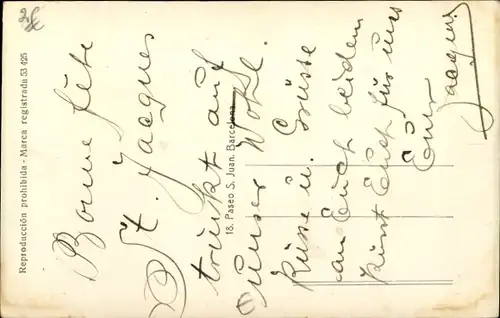 Bonne fête
St. Jacques
trinkt auf
unser Wohl.
Küsse u. Grüsse
an Euch beiden
küsst Euch für uns
Euer
Jacques.
Reproducción prohibida - Marca registrada 53 425
18. Paseo S. Juan. Barcelona